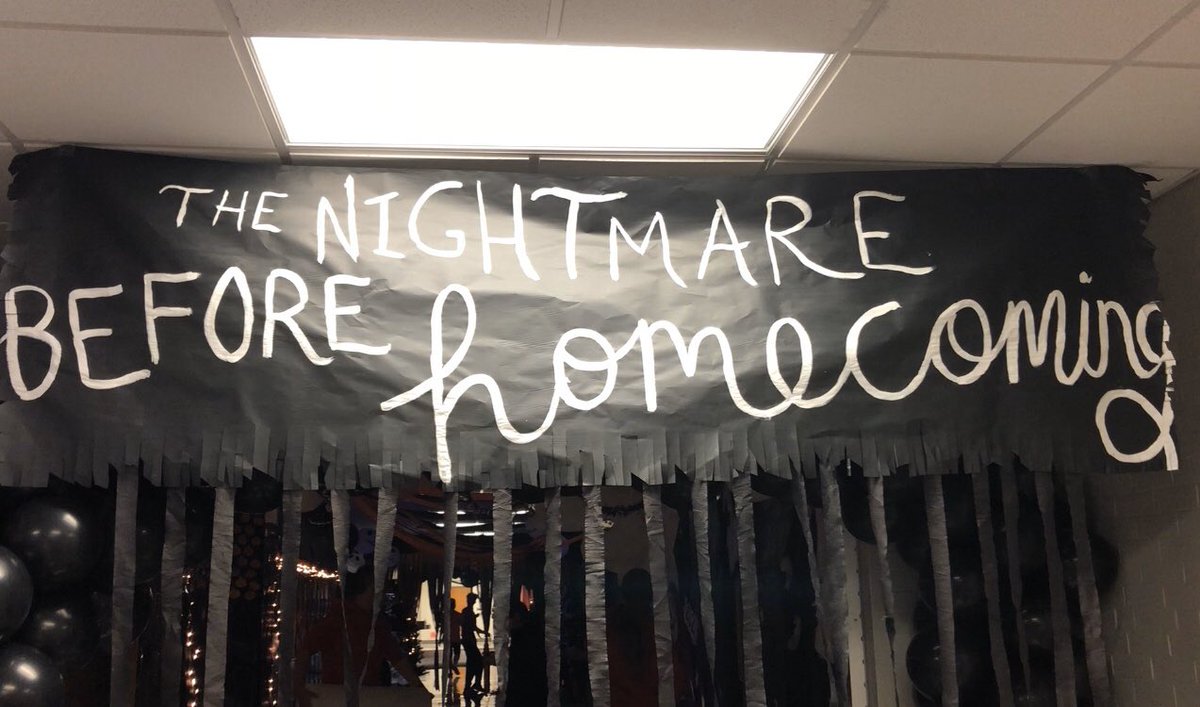 THE NIGHTMARE
BEFORE homecoming